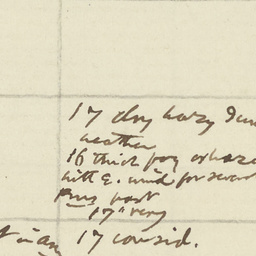 17 dry hazy
weather
16 thick fog or haze
with E. wind for
days past
17" very
17 consid.